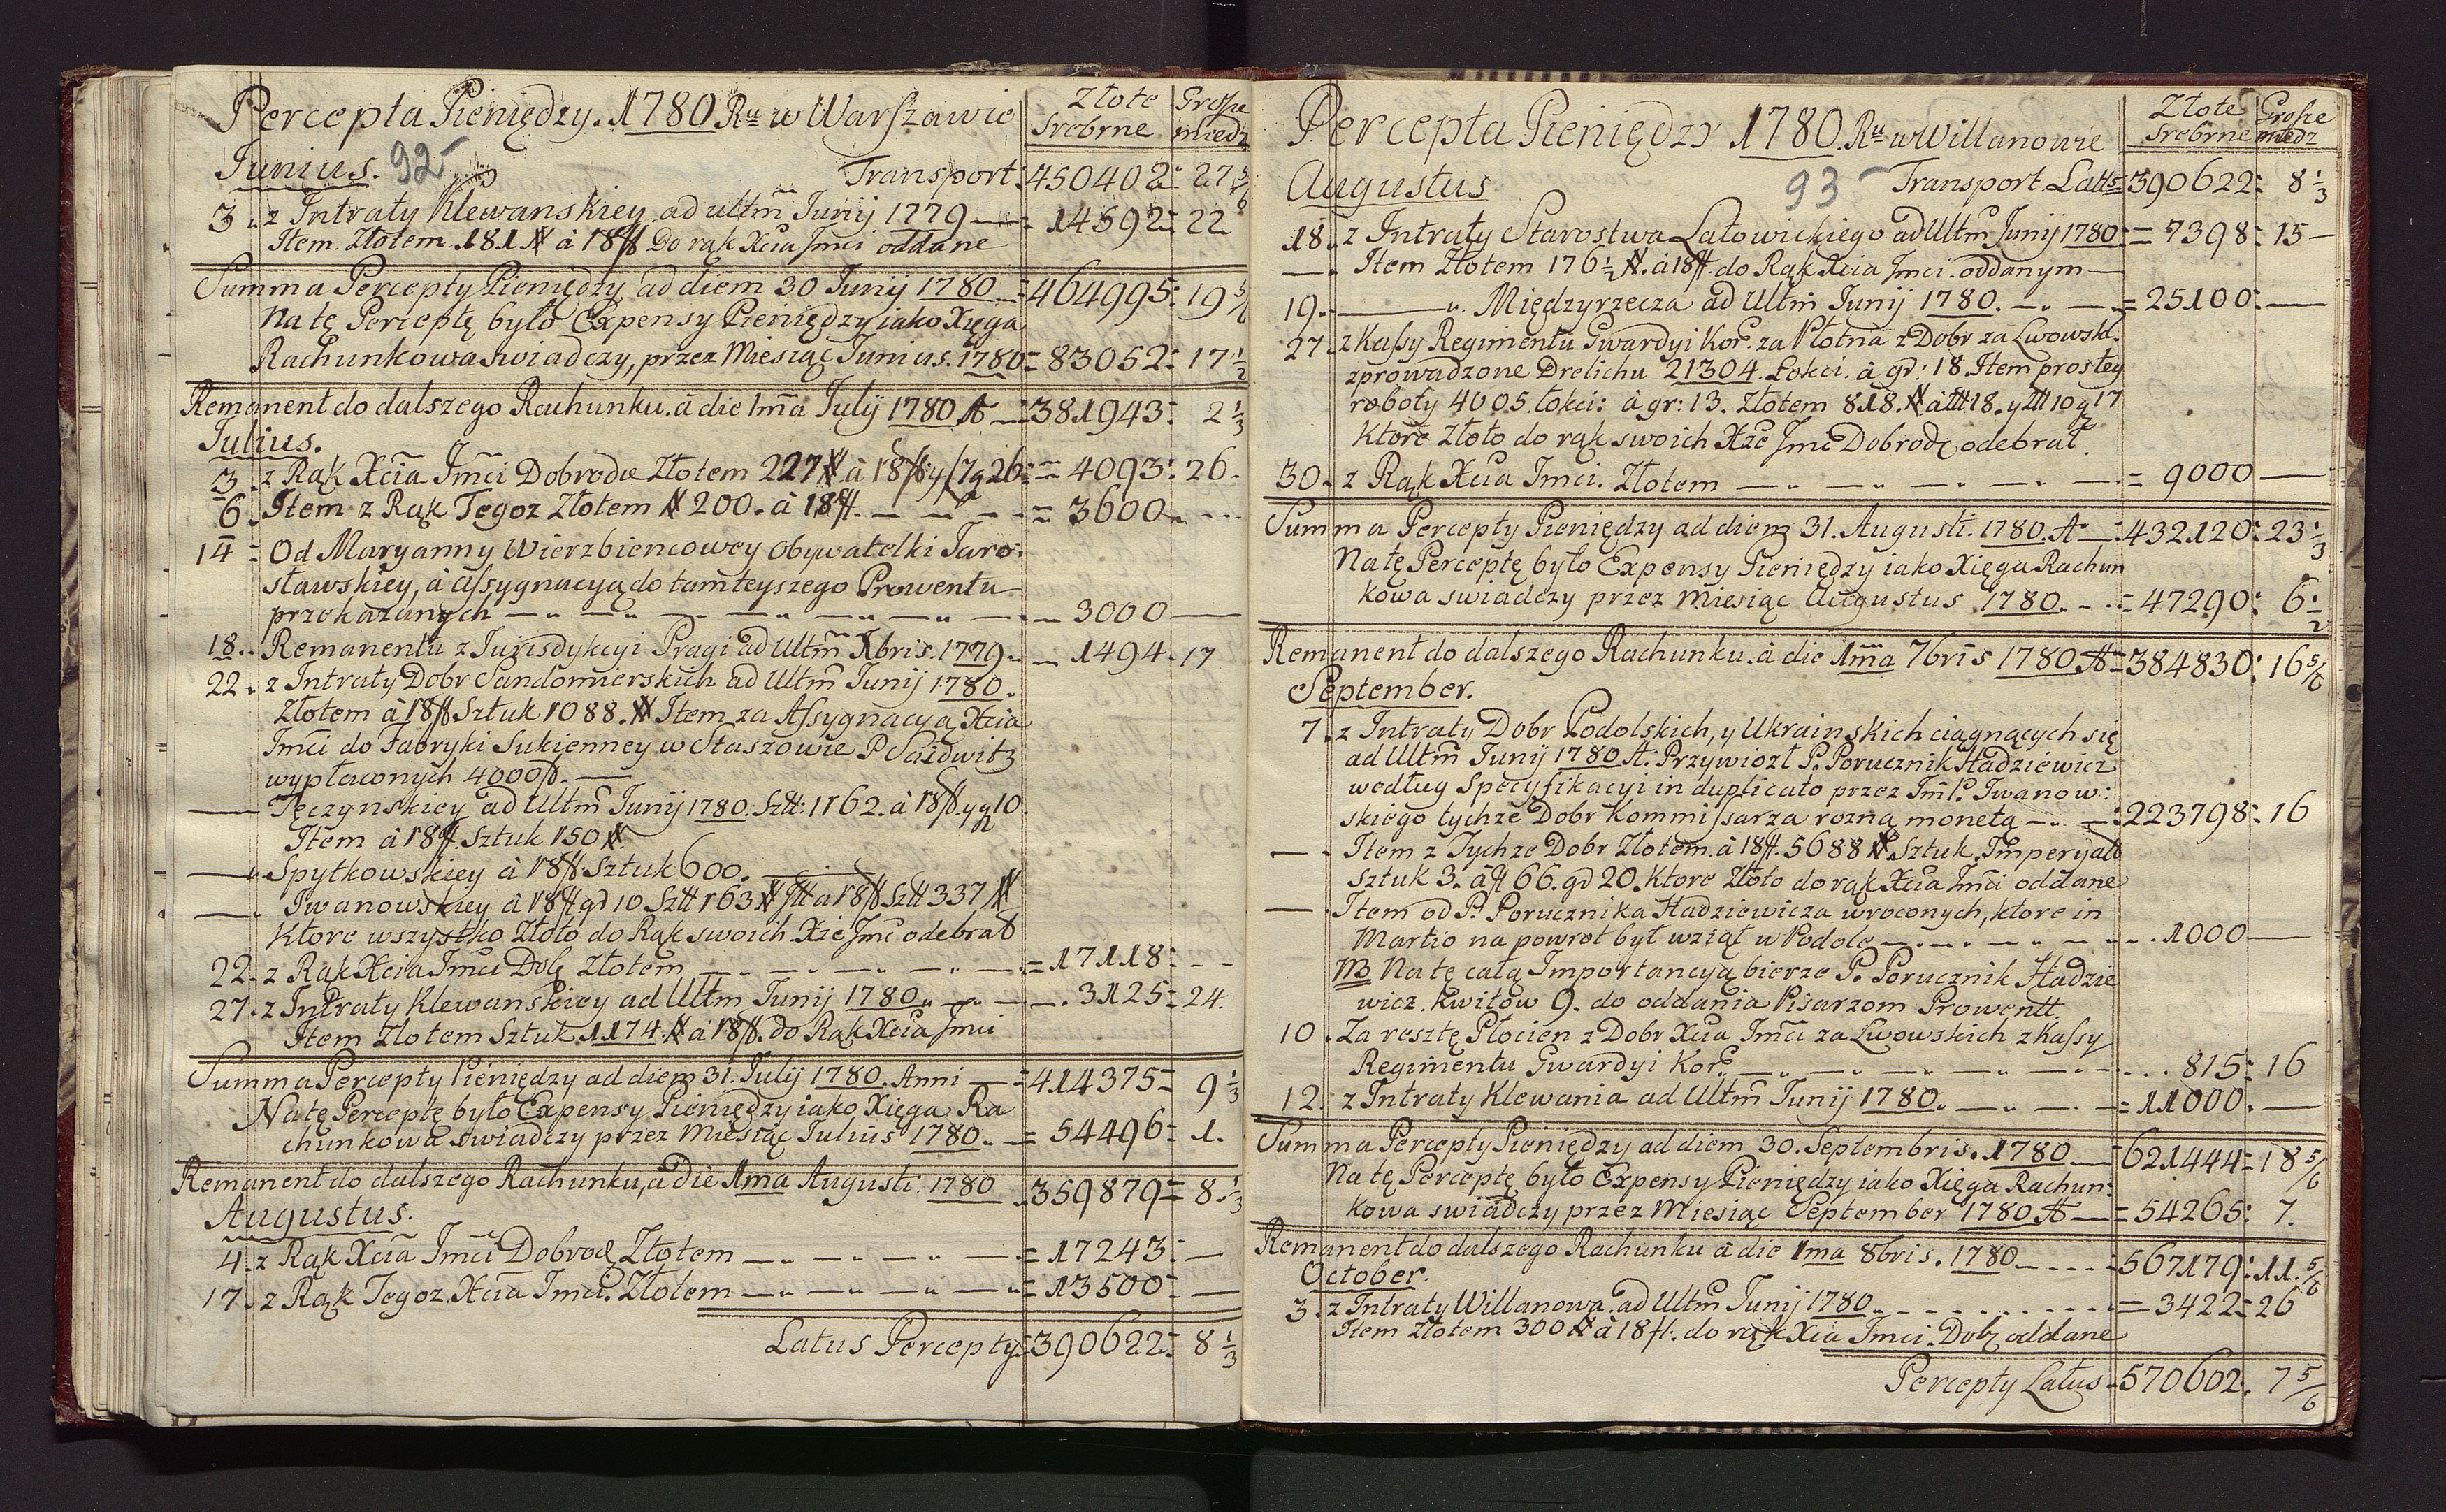 Percepta Pieniędzy. 1780 Ru w Warszawie
Złote Grosze
Srebrne miedz
Junius. 92
Transport 450402: 27 5/6
3. z Intraty Klewanskiey ad ultm Junij 1779 — 14592: 22
Item Złotem 181 # à 18 fl Do rąk Xcia Jmci oddane
Summa Percepty Pieniędzy ad diem 30 Junij 1780 = 464995: 19 5/6
Na tę Perceptę było Expensy Pieniędzy iako Xięga
Rachunkowa swiadczy, przez Miesiąc Junius. 1780 = 83052: 17 1/2
Remanent do dalszego Rachunku. à die 1ma Julij 1780 A — 381943: 2 1/3
Julius.
3. z Rąk Xcia Jmci Dobrodz Złotem 227 # à 18 fl y 17 g 26 = 4093: 26.
6. Item z Rąk Tegoz Złotem # 200. à 18 fl. — = 3600
14 = Od Maryanny Wierzbiencowey Obywatelki Jaro:
sławskiey, à Assygnacyą do tamteyszego Prowentu
przekazanych — 3000 —
18. Remanentu z Jurisdykcyi Pragi ad Ultm Xbris. 1779. — 1494. 17
22. z Intraty Dobr Sandomierskich ad Ultm Junij 1780.
Złotem à 18 fl Sztuk 1088. # Item za Assygnacyą Xcia
Jmci do Fabryki Sukienney w Staszowie P Saidwitz
wypłaconych 4000 fl. —
— Tęczynskiey ad Ultm Junij 1780. Sztt: 1162. à 18 fl. y g 10.
Item à 18 fl. Sztuk 150 #.
— Spytkowskiey à 18 fl Sztuk 600.
— Iwanowskiey à 18 fl gr 10 Sztt 163 # Itt à 18 fl Sztt 337 #
Ktore wszystko Złoto do Rąk swoich Xże Jmć odebrał
22. z Rąk Xcia Jmci Dob Złotem — = 17118: - -
27. z Intraty Klewanskiey ad Ultm Junij 1780. — 3125 = 24.
Item Złotem Sztuk. 1174. # à 18 fl. do Rąk Xcia Jmci
Summa Percepty Pieniędzy ad diem 31. Julij 1780. Anni — = 414375 = 9 1/3
Na tę Perceptę było Expensy Pieniędzy iako Xięga Ra
chunkowa swiadczy przez Miesiąc Julius 1780. = 54496 = 1.
Remanent do dalszego Rachunku, à Die 1ma Augusti. 1780 359879 = 8. 1/3
Augustus.
4. z Rąk Xcia Jmci Dobrodz Złotem — = 17243: —
17. z Rąk Tegoz. Xcia Jmci. Złotem — = 13500 = —
Latus Percepty 390622 = 8 1/3
Percepta Pieniędzy 1780. Ru w Willanowie
Złote Grosze
Srebrne miedz
Augustus 93 Transport Latts 390622: 8 1/3
18. z Intraty Starostwa Latowickiego ad Ultm Junij 1780 = 7398: 15 —
— . Item Złotem 176 1/2 #. à 18 fl. do Rąk Xcia Jmci. oddanym —
19. — . Międzyrzecza ad Ultm Junij 1780. — = 25100: —
27. z Kassy Regimentu Gwardyi Kor. za Płotna z Dobr za Lwowskl.
zprowadzone Drelichu 21304. Łokci. à gr: 18. Item prostey
roboty 4005. łokci: à gr: 13. Złotem 818. # à fll 18. y fll 10 g 17
Ktore Złoto do rąk swoich Xże Jmć Dobrodz odebrał.
30. z Rąk Xcia Jmci. Złotem — = 9000 —
Summa Percepty Pieniędzy ad diem 31. Augusti. 1780. A — 432120: 23 1/3
Na tę Perceptę było Expensy Pieniędzy iako Xięga Rachun
kowa swiadczy przez Miesiąc Augustus 1780. = 47290: 6 1/2
Remanent do dalszego Rachunku. à die 1ma 7bris 1780 A = 384830: 16 5/6
September.
7. z Intraty Dobr Podolskich, y Ukrainskich ciągnących się
ad Ultm Junij 1780 A. Przywiozł P. Porucznik Hadziewicz
według Specyfikacyi in duplicato przez JmP. Iwanow:
skiego tychże Dobr Kommissarza rozną monetą — 223798: 16
— . Item z Tychze Dobr Złotem. à 18 fl. 5688 # Sztuk. Imperyałł
Sztuk 3. à fl 66. gr 20. Ktore Złoto do rąk Xcia Jmci oddane
— . Item od P. Porucznika Hadziewicza wroconych, ktore in
Martio na powrot był wziął w Podole — . 1000 —
NB Na tę całą Importancyą bierze P. Porucznik Hadzie
wicz. Kwitow 9. do oddania Pisarzom Prowentt.
10. Za resztę Płocien z Dobr Xcia Jmci za Lwowskich z Kassy
Regimentu Gwardyi Kor. — . . . 815: 16
12. z Intraty Klewania ad Ultm Junij 1780. — = 11000. —
Summa Percepty Pieniędzy ad diem 30. Septembris. 1780 — 621444 = 18 5/6
Na tę Perceptę było Expensy Pieniędzy iako Xięga Rachun:
kowa swiadczy przez Miesiąc September 1780 A — = 54265: 7.
Remanent do dalszego Rachunku à die 1ma 8bris. 1780 — 567179: 11. 5/6
October.
3. z Intraty Willanowa. ad Ultm Junij 1780. — = 3422 = 26
Item Złotem 300 # à 18 fl. do rąk Xcia Jmci. Dobz oddane
Percepty Latus 570602. 7 5/6